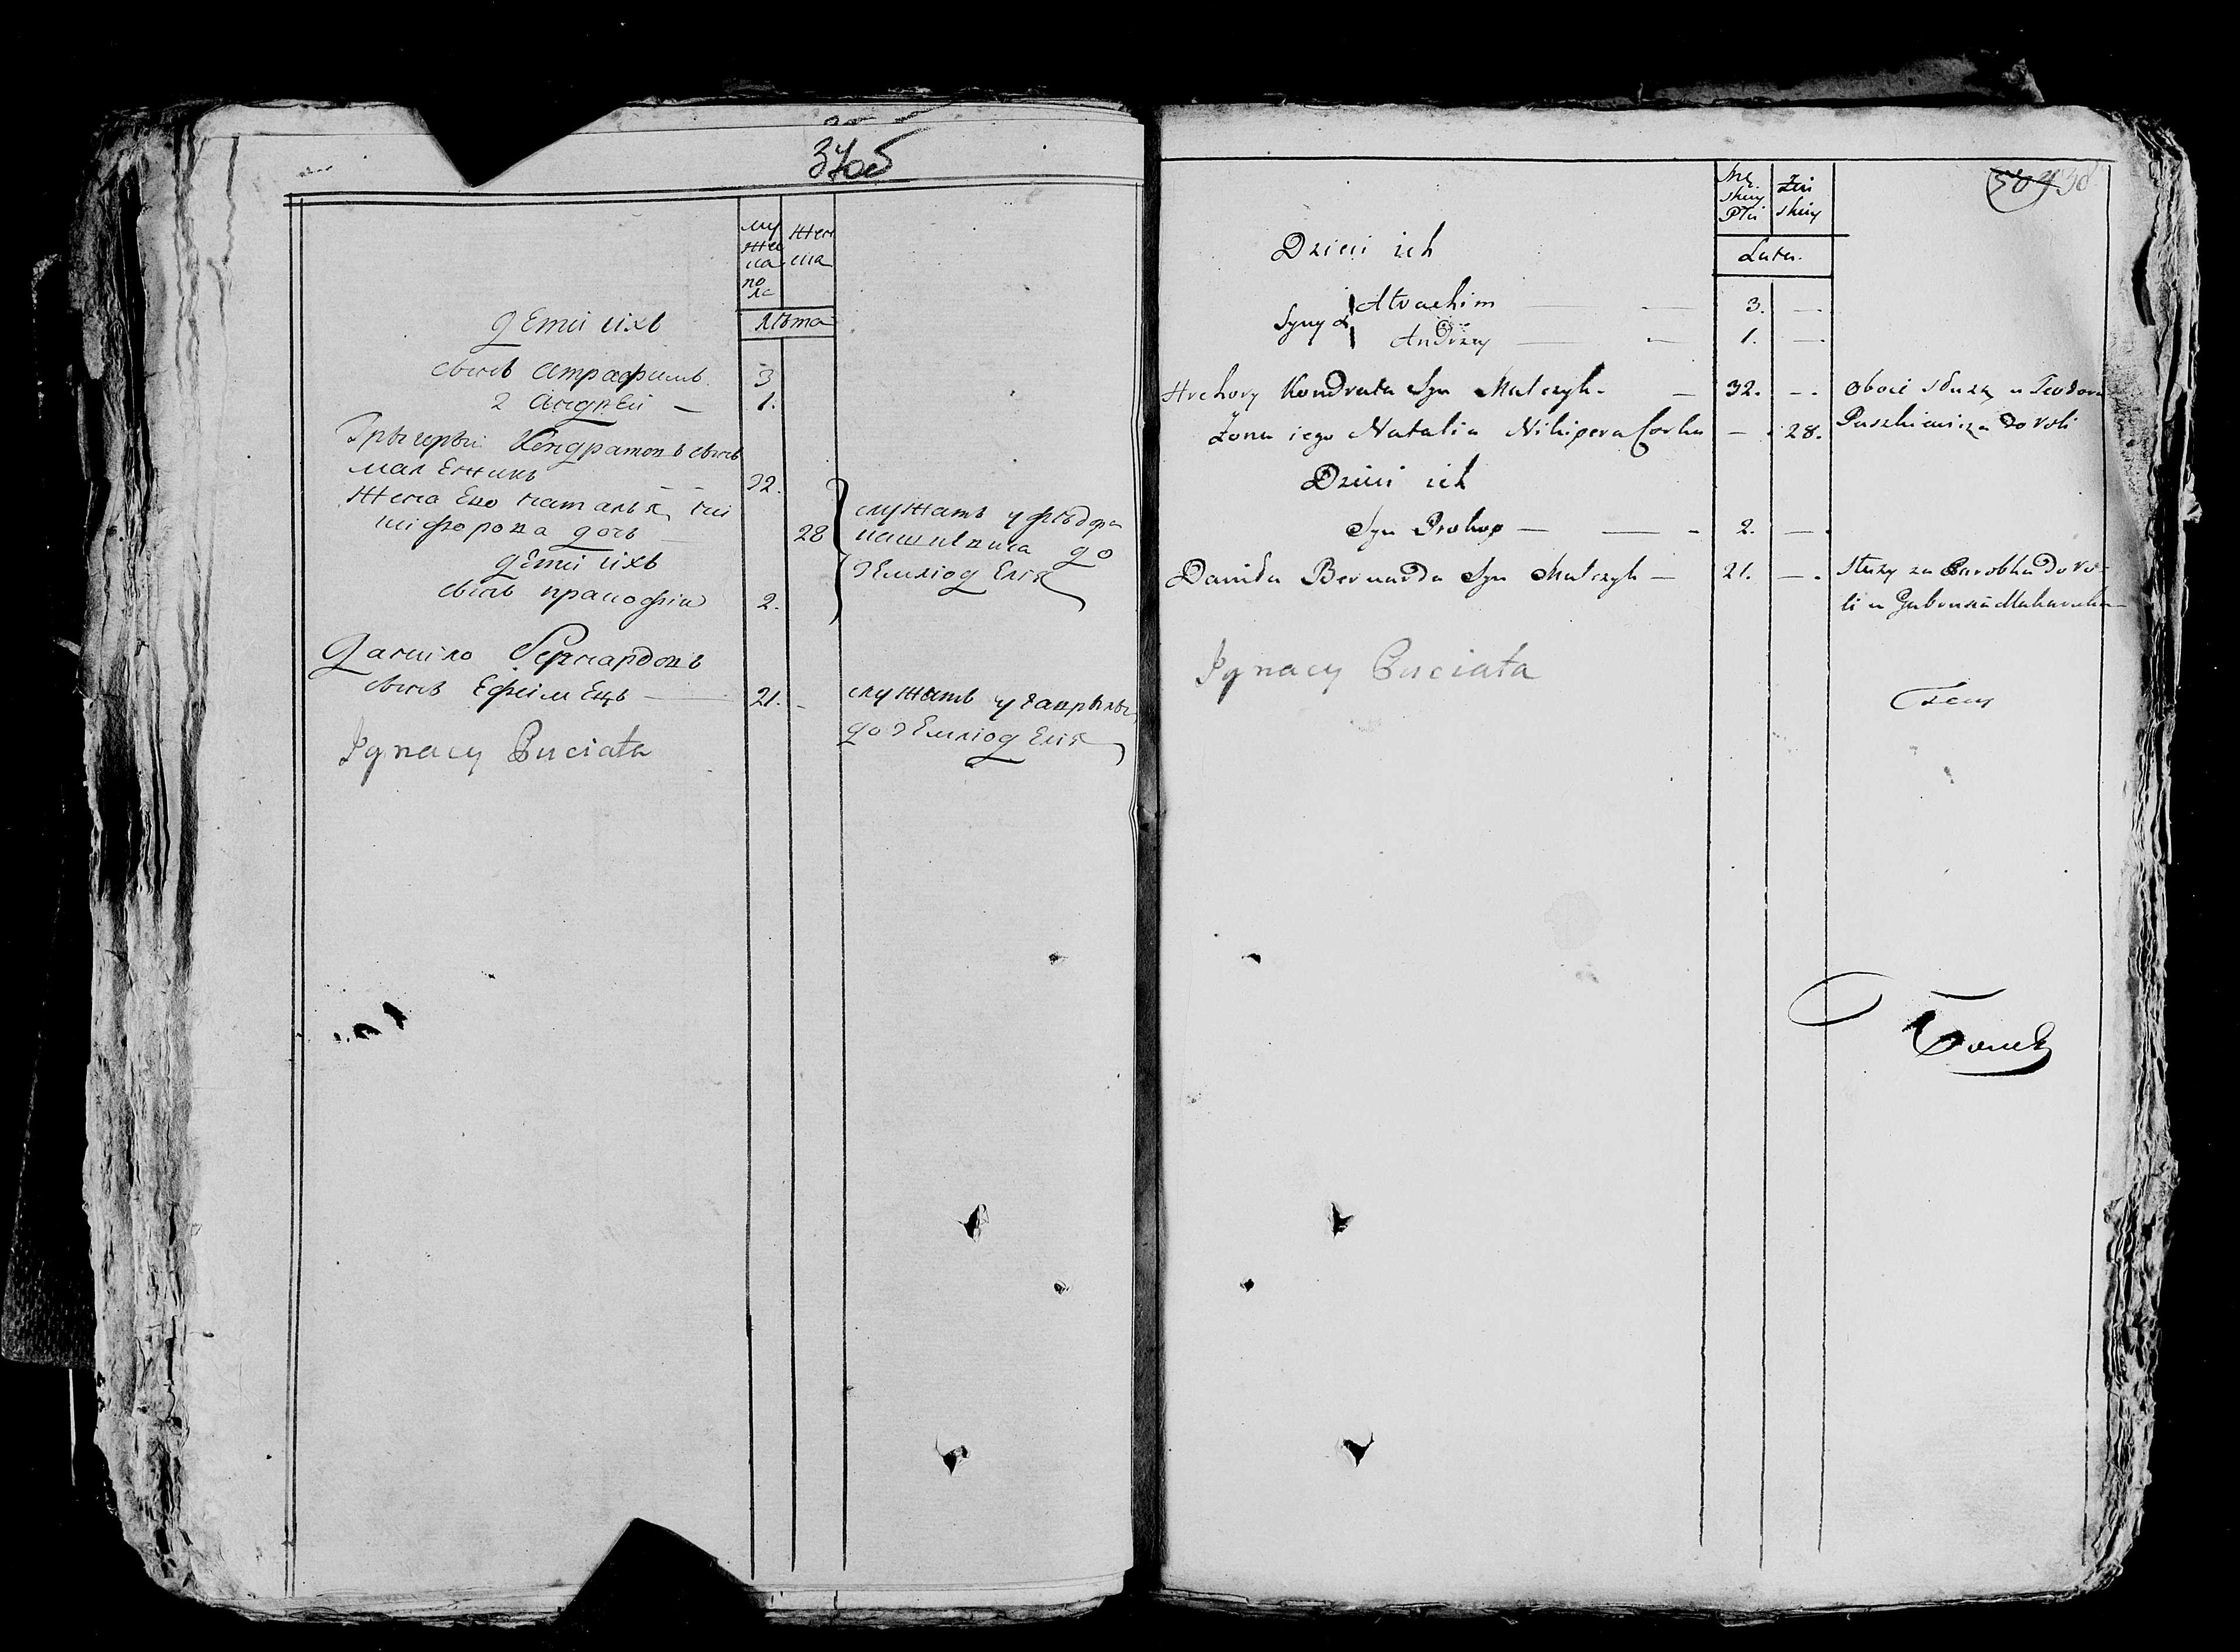 370б
му
жес
ка
по
ла
жен
ска
лѣта
дети ихъ
сынъ Атрафимъ 3
2 Андреи — 1.
Грыгеры Кондратовъ сынъ
малежикъ — 32.
жена его наталья ни
кифорова дочь — 28
служатъ у фѣдора
пашкевича до
земліоделія
дети ихъ
сынъ пракофіи 2.
Данило Бернардовъ
сынъ Ефимецъ — 21. -
служатъ у гаврылы
до земліоделія
Ignacy Puciata
509 38
Męskiey Płci
Żeń
skiey
Lata.
Dzieci ich
Synyᵂ Atrachim — — 3. —
Andrzey — — 1. —
Hrehory Kondrata Syn Malczyk — 32. —
Oboie służą u Teodora
Żona iego Natalia Nikipera Corka — 28.
Paszkiewicza do roli
Dzieci ich
Syn Prokop — — 2. —
Daniła Bernarda Syn Malczyk — 21. —
Służy za Parobka do ro-
li u
Ignacy Puciata